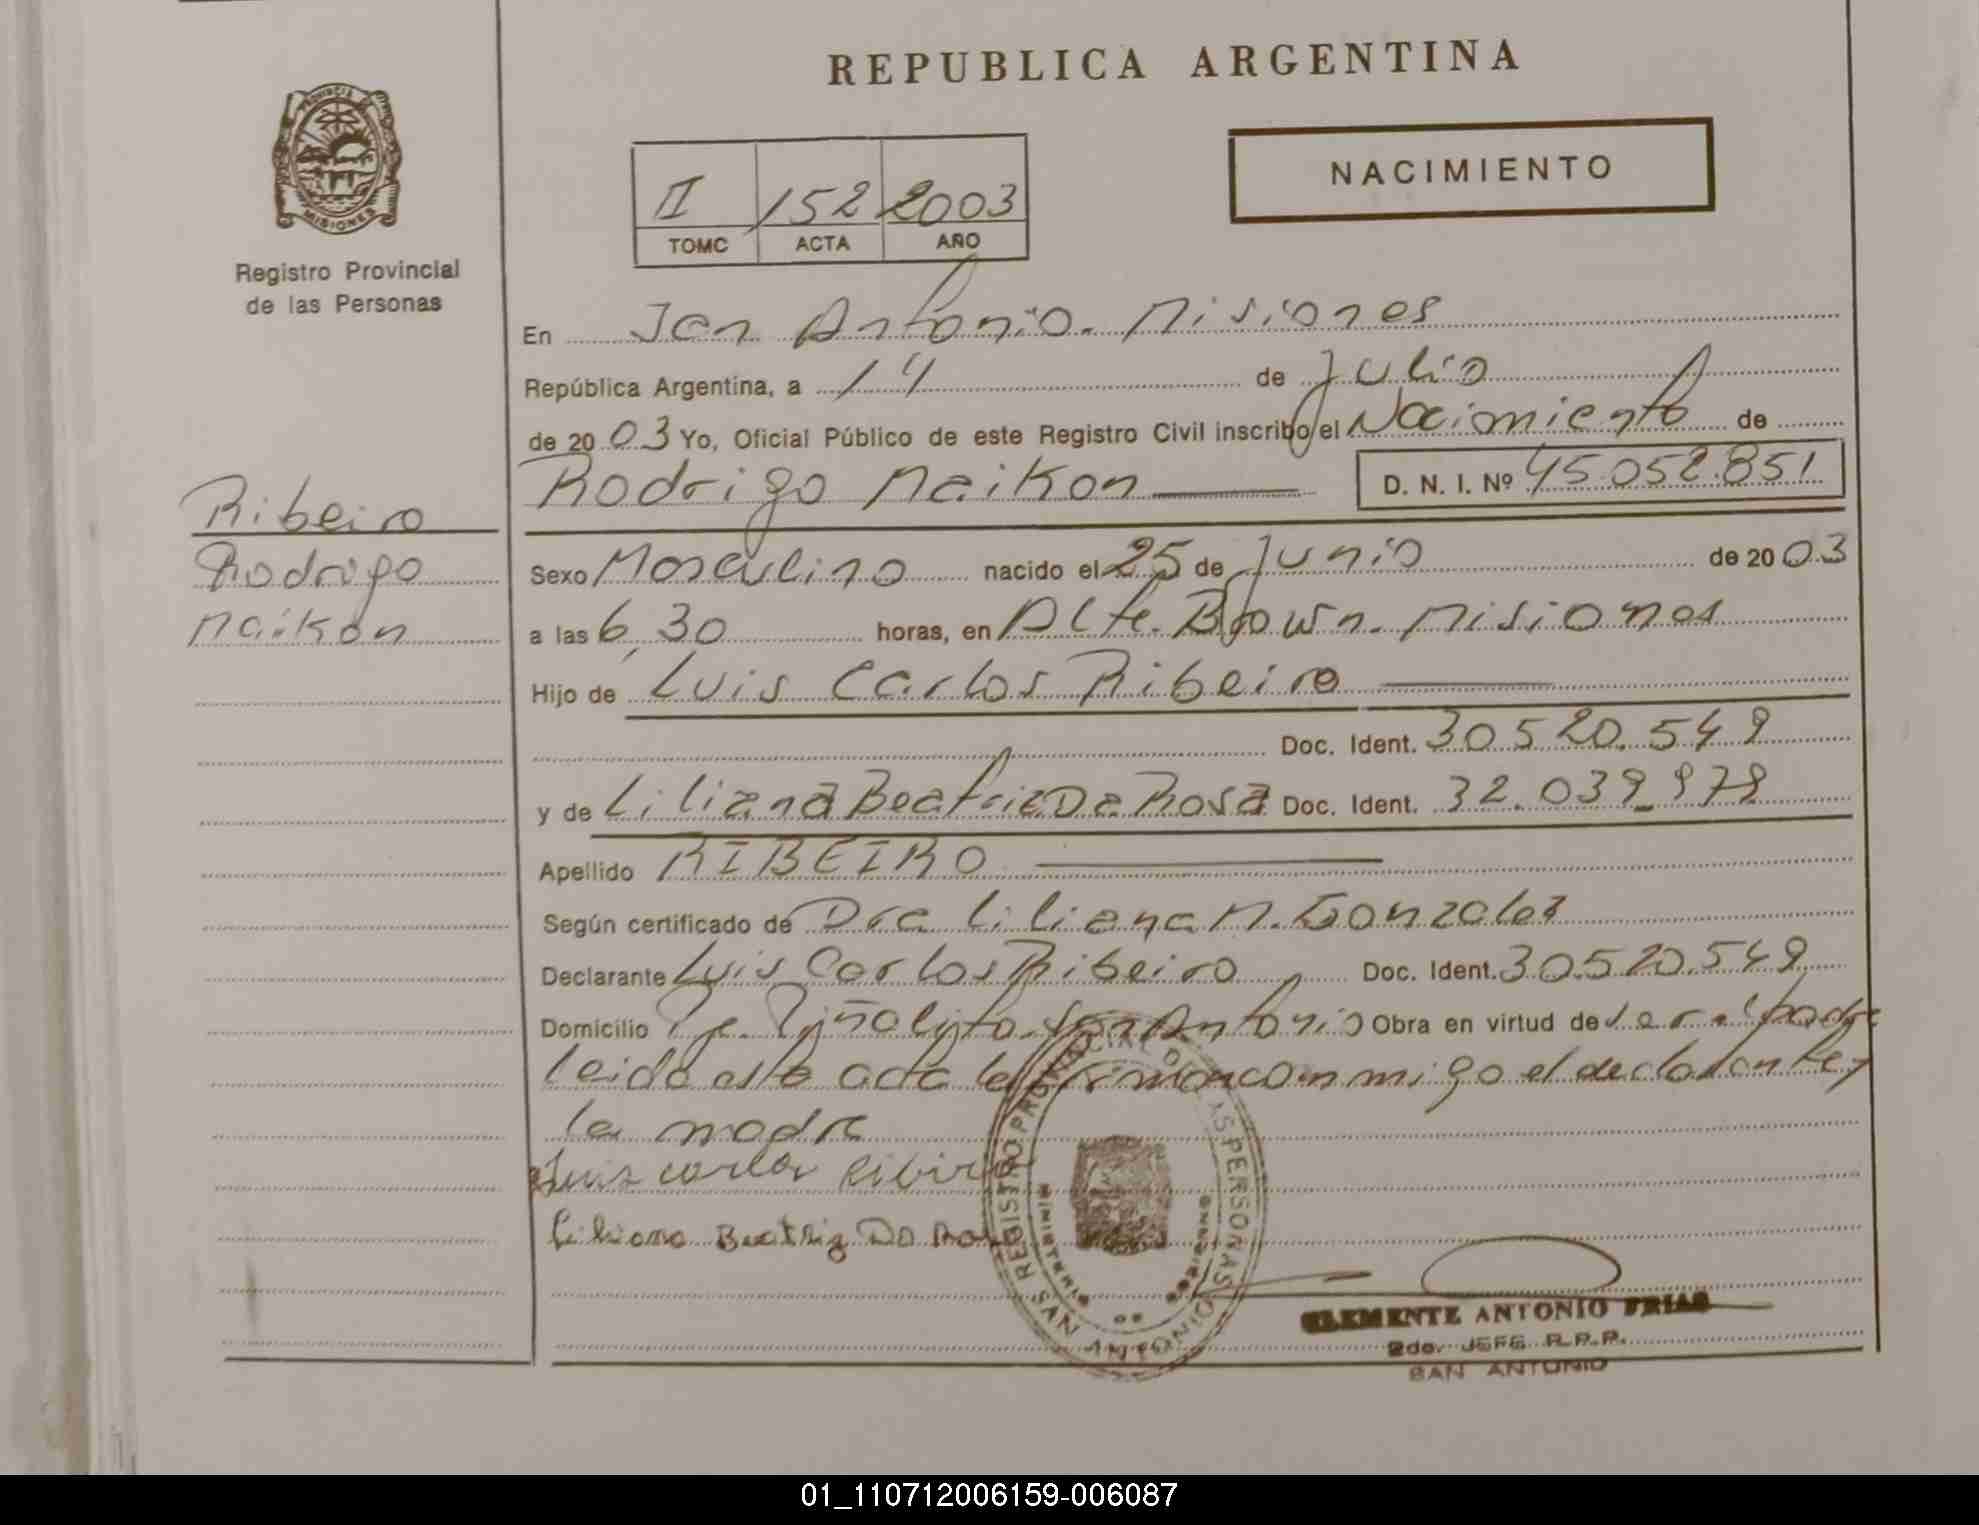 REPUBLICA ARGENTINA
PROVINCIA DE
MISIONES
Registro Provincial
de las Personas
II 152 2003
TOMO ACTA AÑO
NACIMIENTO
En San Antonio. Misiones
República Argentina, a 14 de Julio
de 2003 Yo, Oficial Público de este Registro Civil inscribo el Nacimiento de
Rodrigo Maikon D. N. I. Nº 45.052.851
Ribeiro
Rodrigo
Maikon
Sexo Masculino nacido el 25 de Junio de 2003
a las 6,30 horas, en Alte. Brown. Misiones
Hijo de Luis Carlos Ribeiro
Doc. Ident. 30520.549
y de Liliana Beatriz Da Rosa Doc. Ident. 32.039.979
Apellido RIBEIRO
Según certificado de Dra Liliana M. Gonzalez
Declarante Luis Carlos Ribeiro Doc. Ident. 30.520.549
Domicilio Pje. Piñalito San Antonio Obra en virtud de ser el padre
leida esta acta la firman conmigo el declarante y
la madre
Luis carlos
Liliana Beatriz Da
REGISTRO PROVINCIAL DE LAS PERSONAS
MINISTERIO
SAN ANTONIO
CLEMENTE ANTONIO FRIAS
2do. JEFE R.P.P.
SAN ANTONIO
01_110712006159-006087